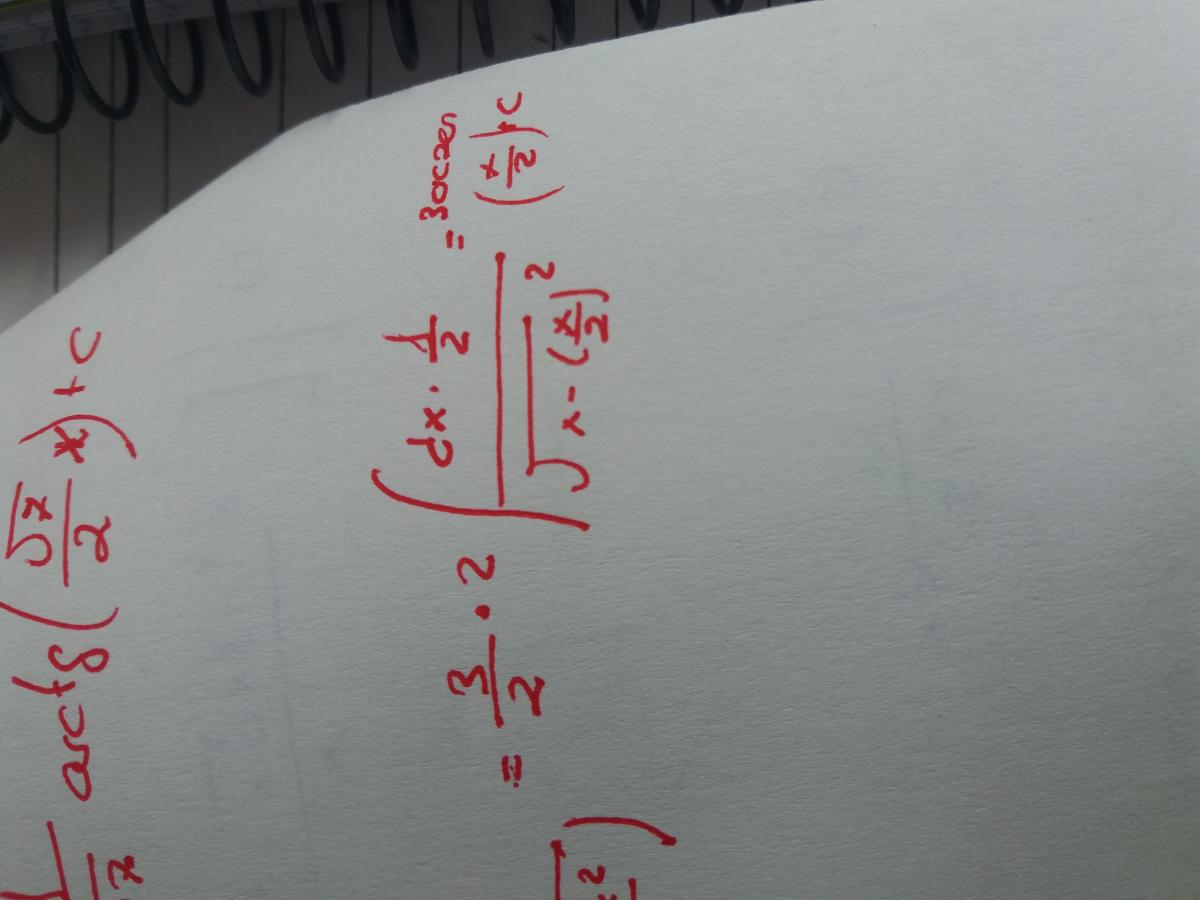 arctg(√7/2 x)+c
= 3/2 · 2 ∫ dx · 1/2 / √1-(x/2)² = 3arcsen (x/2)+c